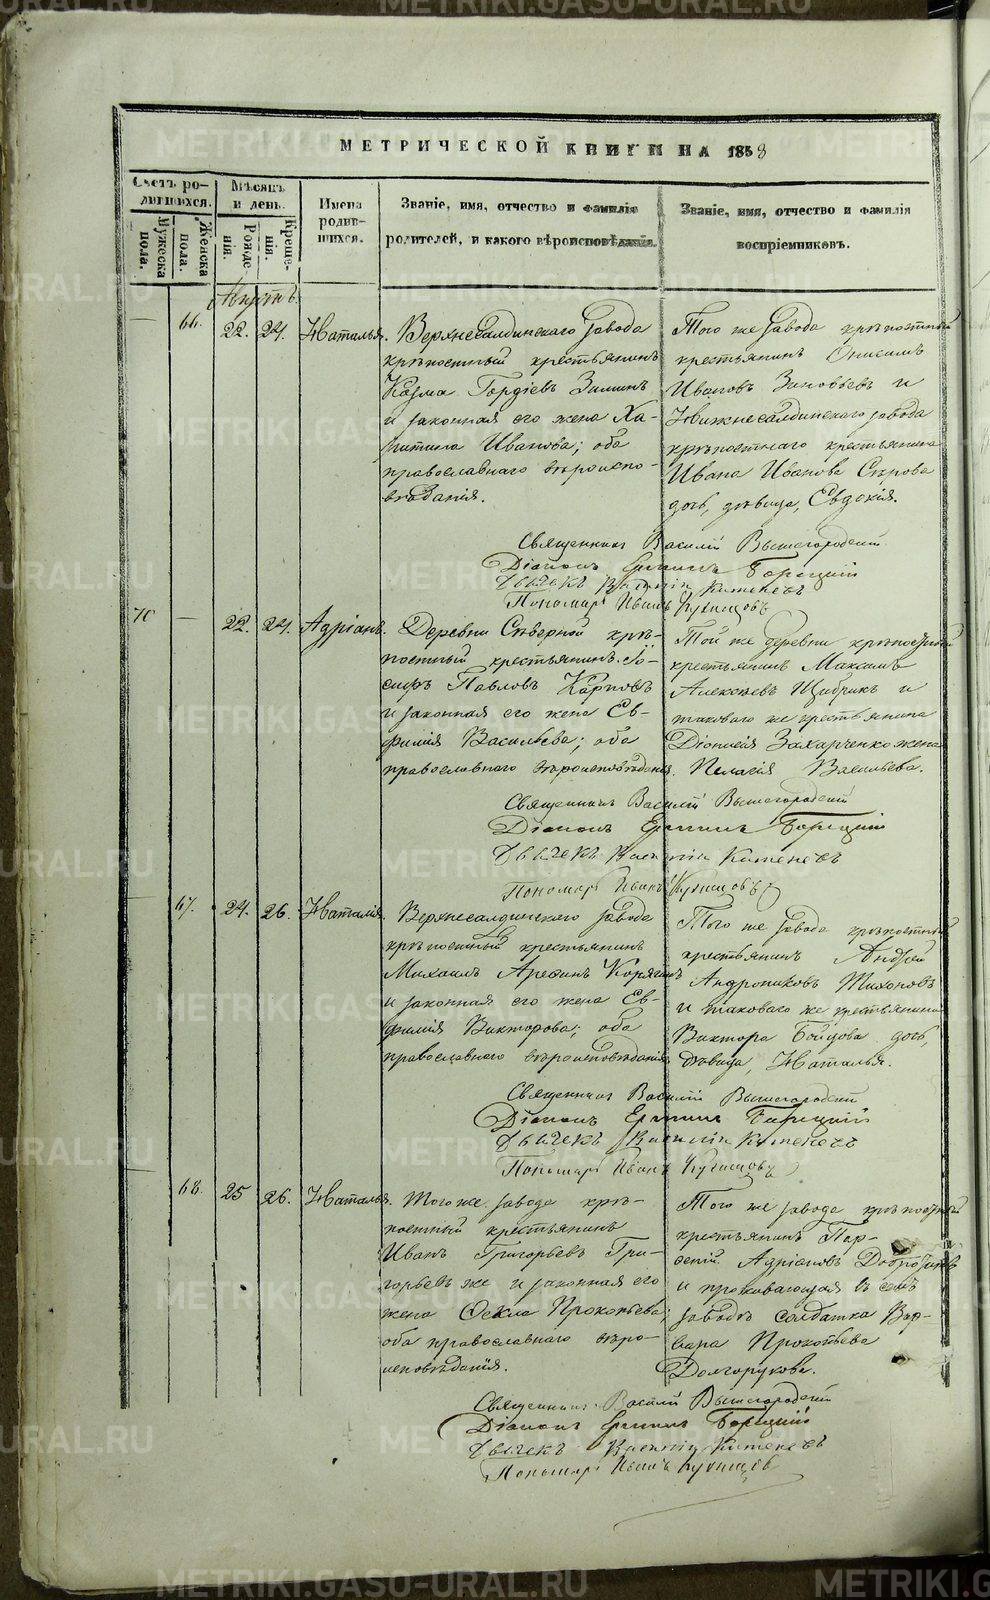 МЕТРИЧЕСКОЙ КНИГИ НА 1858
Счетъ ро-
дившихся.
Мужеска пола.
Женска пола.
Мѣсяцъ
и день.
Рожденія.
Крещенія.
Имена
родив-
шихся.
Званіе, имя, отчество и фамилія
родителей, и какого вѣроисповѣданія.
Званіе, имя, отчество и фамилія
воспріемниковъ.
66. 22. 24. Наталья.
Верхнесалдинскаго завода
крѣпостный крестьянинъ
Козма Гордіевъ Зиминъ
и законная его жена Ха-
ритина Иванова; оба
православнаго вѣроиспо-
вѣданія.
Того же завода крѣпостный
крестьянинъ Онисимъ
Ивановъ Зиновьевъ и
Нижнесалдинскаго завода
крѣпостнаго крестьянина
Ивана Иванова Сѣрова
дочь, дѣвица, Евдокія.
Священникъ Василій Вышегородскій
Діаконъ
Дьячекъ Василій
Пономарь Иванъ Кузнецовъ
70 — 22. 24. Адріанъ.
Деревни Сѣверной крѣ-
постный крестьянинъ Іо-
сифъ Павловъ Карповъ
и законная его жена Ев-
фимія Васильева; оба
православнаго вѣроисповѣданія.
Той же деревни крѣпостный
крестьянинъ Максимъ
Алексѣевъ и
таковаго же крестьянина
Діонисія Захарченко жена
Пелагія Васильева.
Священникъ Василій Вышегородскій
Діаконъ
Дьячекъ Василій
Пономарь Иванъ Кузнецовъ
67. 24. 26. Наталія.
Верхнесалдинскаго завода
крѣпостный крестьянинъ
Михаилъ Корягинъ
и законная его жена Ев-
фимія Викторова; оба
православнаго вѣроисповѣданія.
Того же завода крѣпостный
крестьянинъ Андрей
Андрониковъ Тихоновъ
и таковаго же крестьянина
Виктора дочь,
дѣвица, Наталья.
Священникъ Василій Вышегородскій
Діаконъ
Дьячекъ Василій
Пономарь Иванъ Кузнецовъ
68. 25 26. Наталья.
Того же завода крѣ-
постный крестьянинъ
Иванъ Григорьевъ Гри-
горьевъ же и законная его
жена Ѳекла Прокопьева;
оба православнаго вѣро-
исповѣданія.
Того же завода крѣпостный
крестьянинъ Пар-
ѳеній Адріановъ
и проживающая въ семъ
заводѣ солдатка Вар-
вара Прокопьева
Долгорукова.
Священникъ Василій Вышегородскій
Діаконъ
Дьячекъ Василій
Пономарь Иванъ Кузнецовъ
METRIKI.GASO-URAL.RU